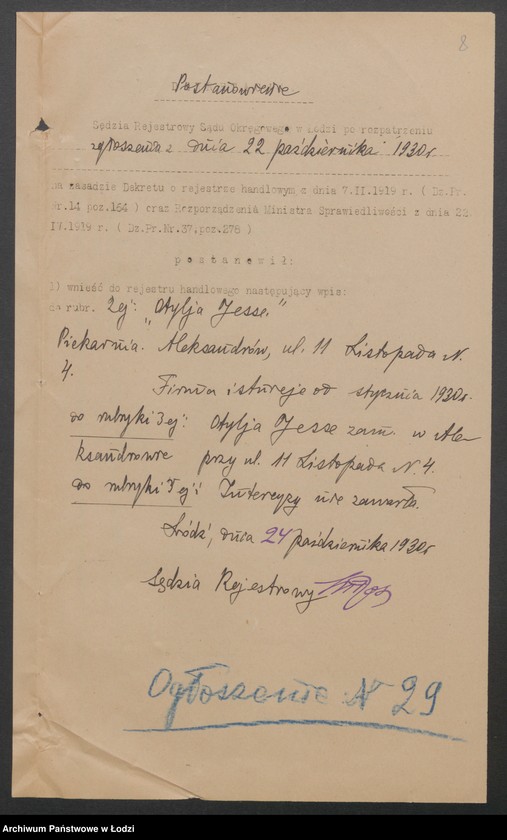 8
Postanowienie
Sędzia Rejestrowy Sądu Okręgowego w Łodzi po rozpatrzeniu
zgłoszenia z dnia 22 października 1930 r.
na zasadzie Dekretu o rejestrze handlowym z dnia 7.II.1919 r. ( Dz.Pr.
Nr.14 poz.164 ) oraz Rozporządzenia Ministra Sprawiedliwości z dnia 22.
IV.1919 r. ( Dz.Pr.Nr.37,poz.278 )
p o s t a n o w i ł:
1) wnieść do rejestru handlowego następujący wpis:
do rubr. 2ej: „Otylja Jesse"
Piekarnia. Aleksandrów, ul. 11 Listopada N.
4.
Firma istnieje od stycznia 1930 r.
do rubryki 3ej: Otylja Jesse zam. w Ale-
ksandrowie przy ul. 11 Listopada N. 4.
do rubryki ej: Intercyzy nie zawarła.
Łódź, dnia 24 października 1930 r
Sędzia Rejestrowy
Ogłoszenie N 29
Archiwum Państwowe w Łodzi